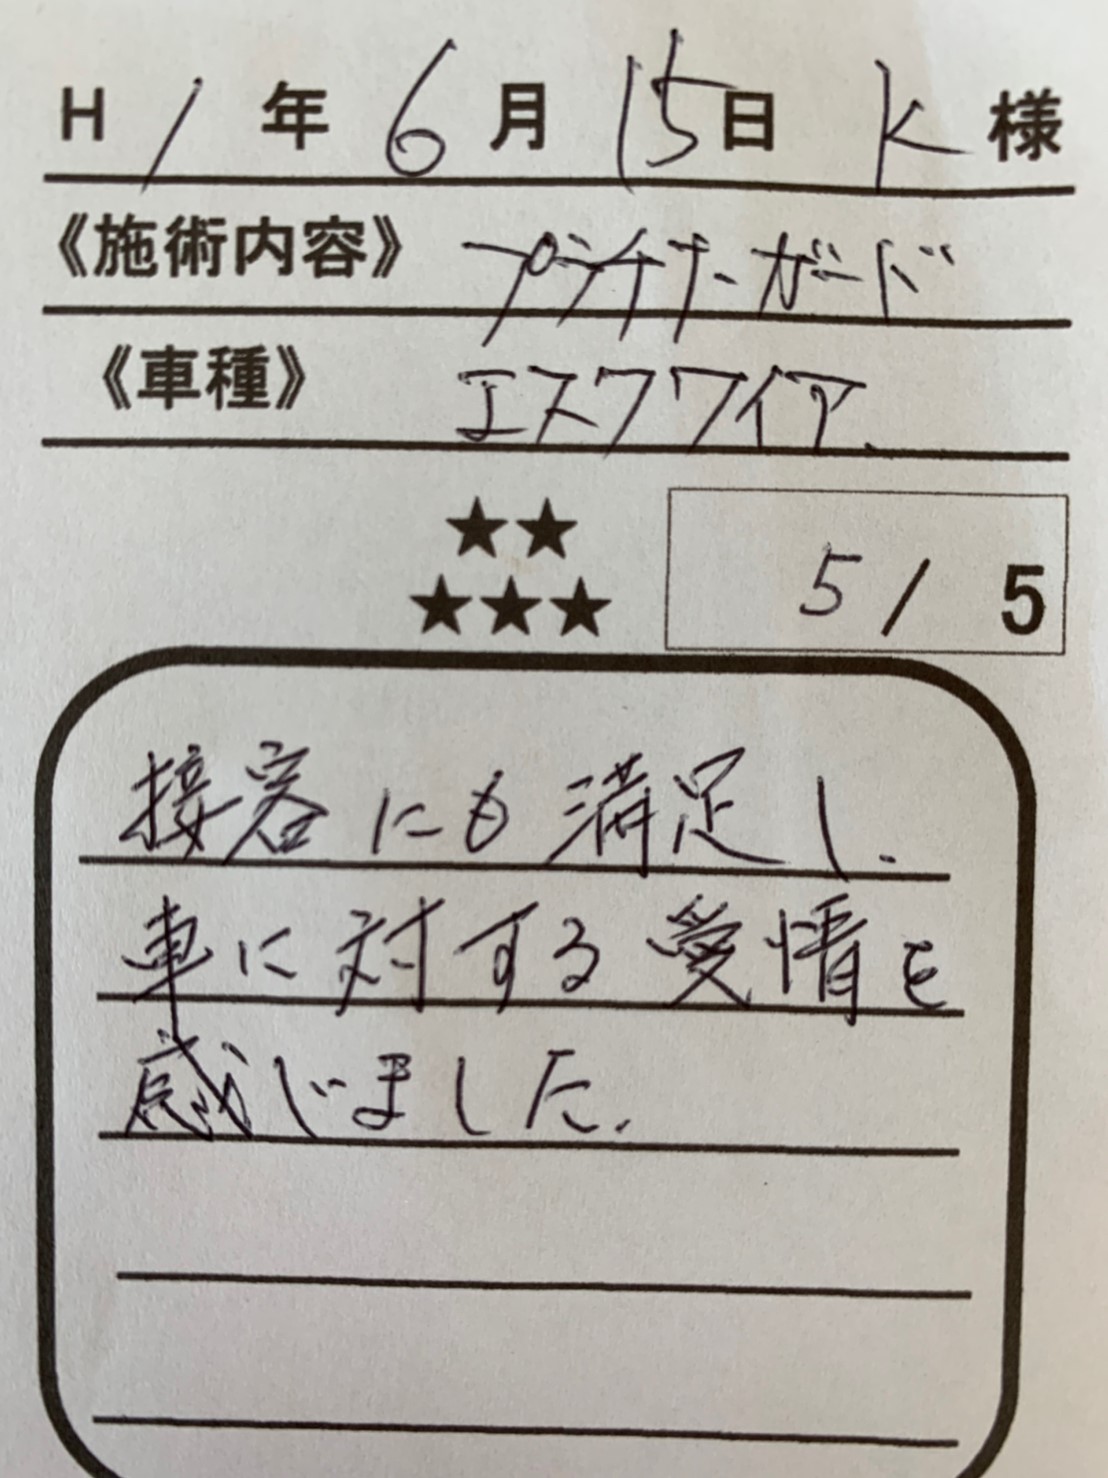 H 1 年 6 月 15 日 K 様
《施術内容》 プラチナガード
《車種》 エスクワイア
★★
★★★
5 / 5
接客にも満足し、
車に対する愛情を
感じました.